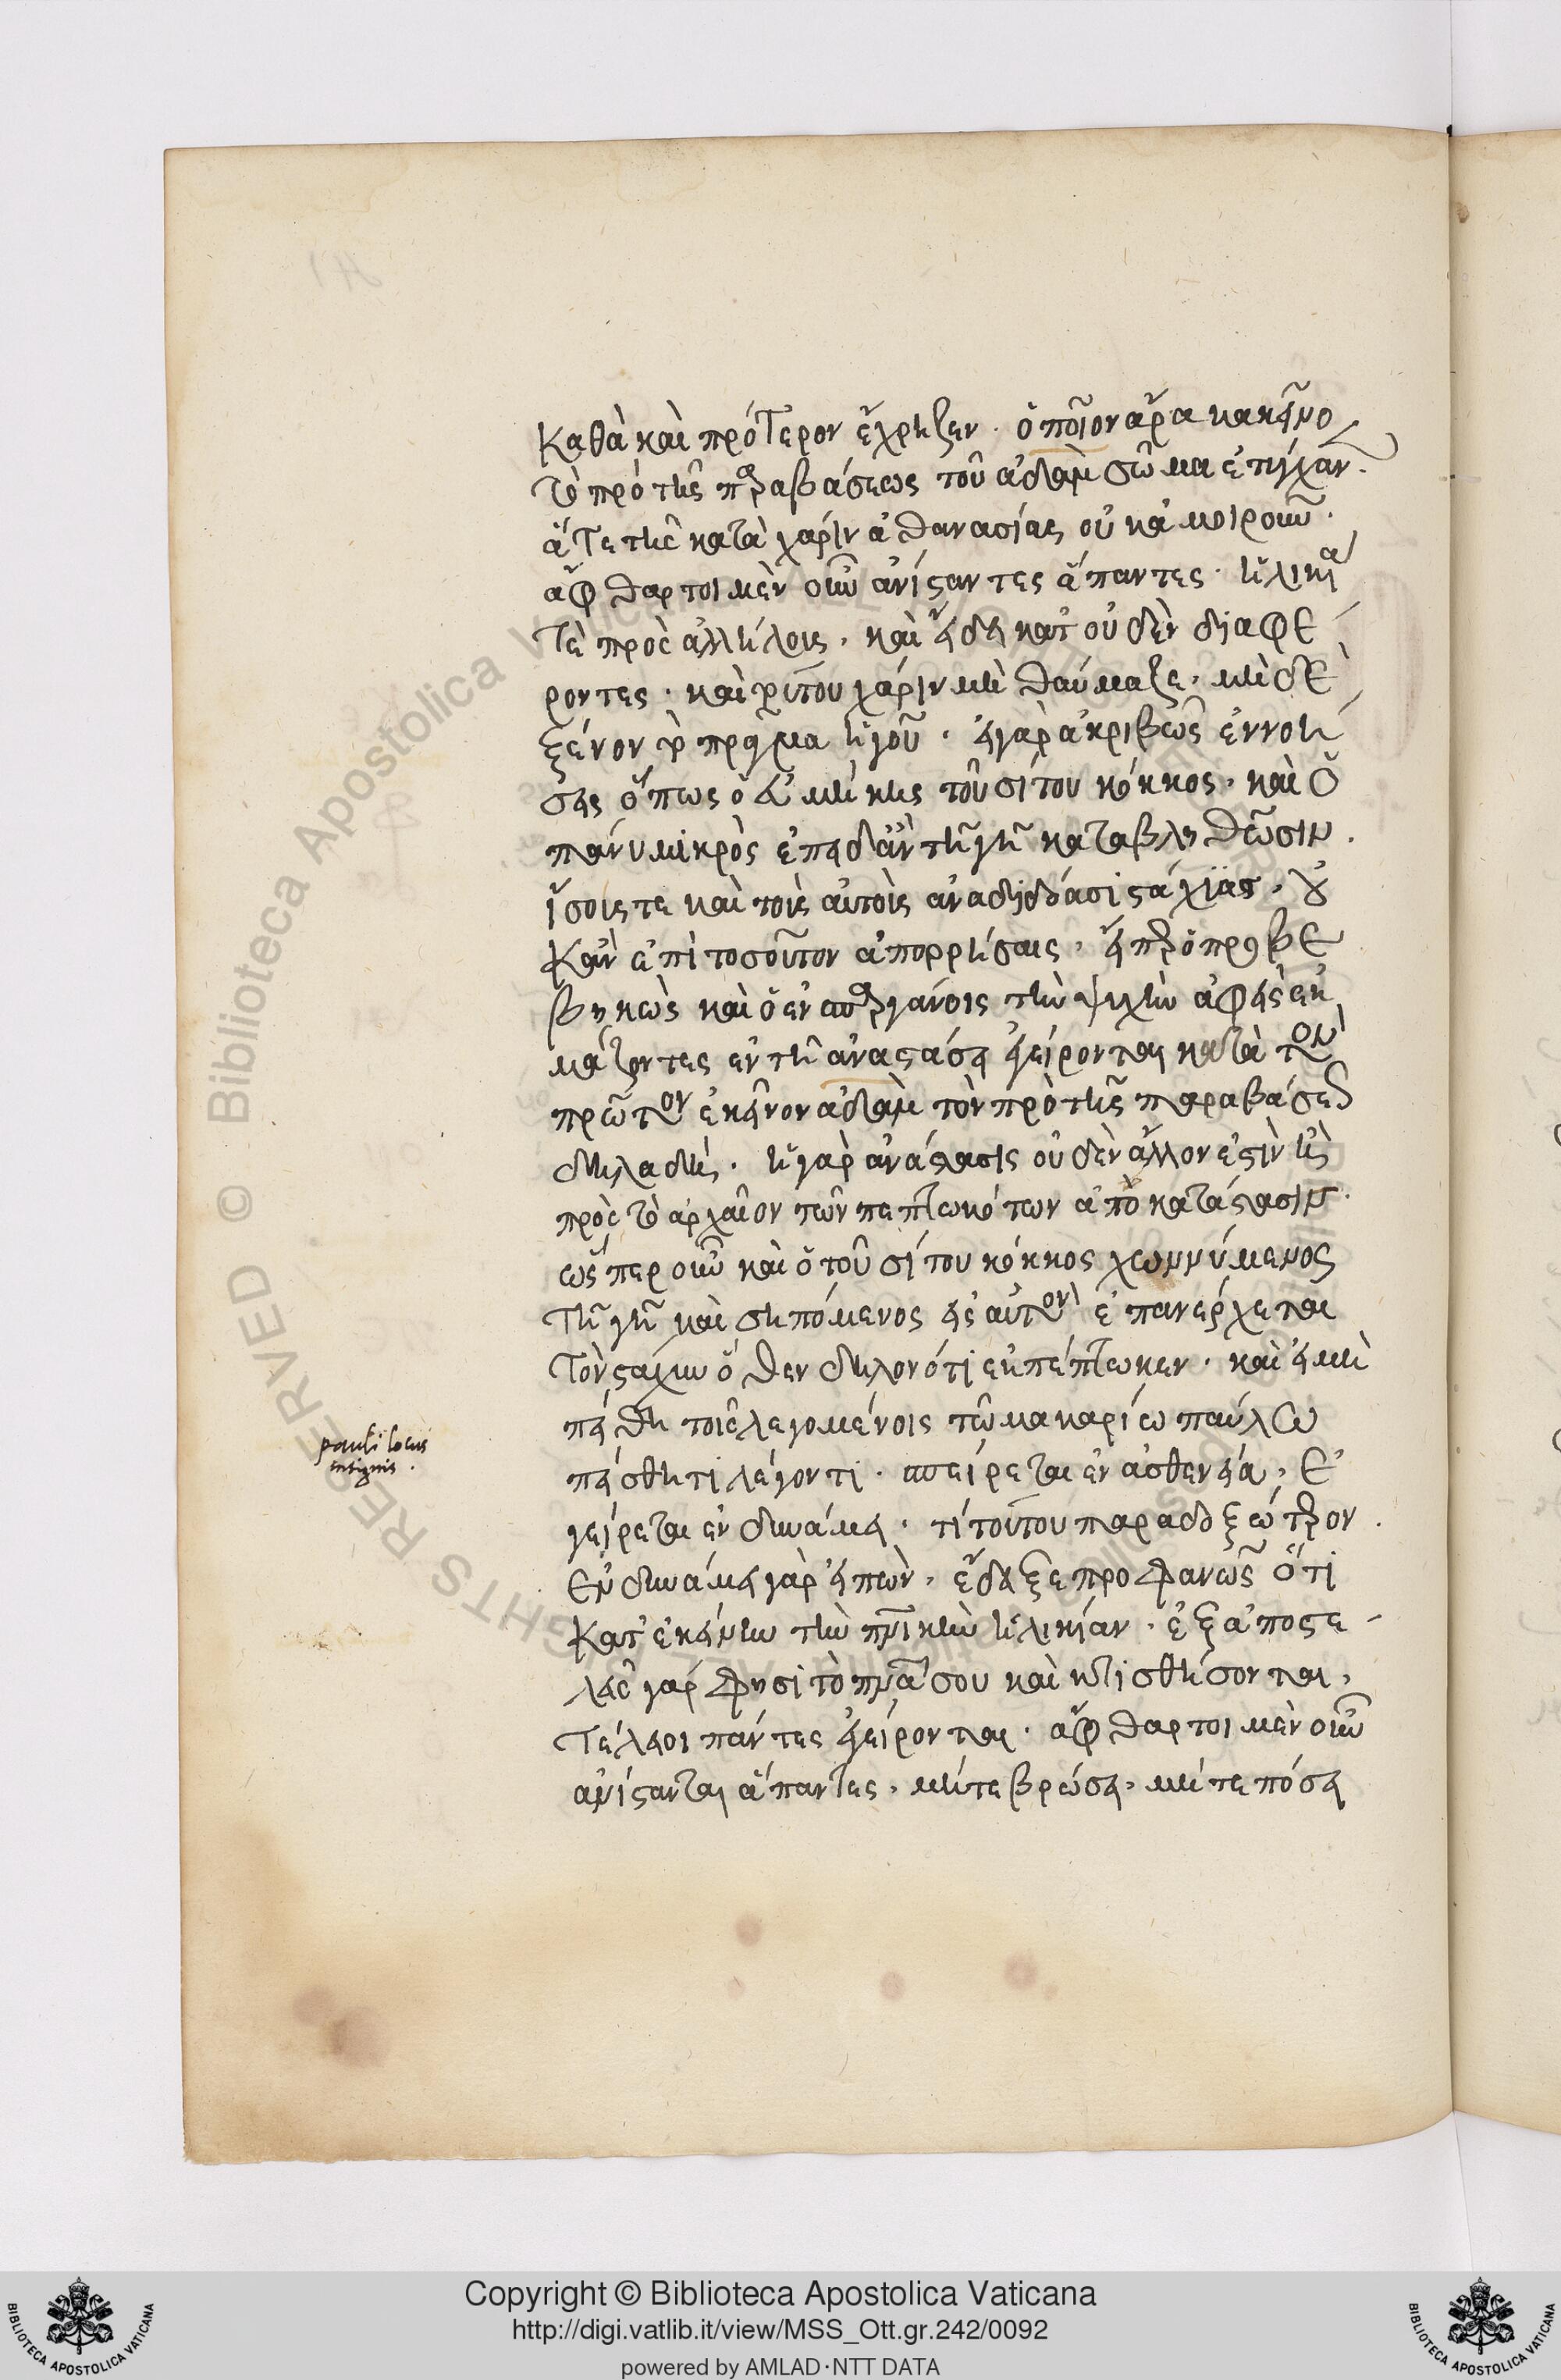 καθὰ καὶ πρότερον ἔχρηζεν. ὁποῖον ἄρα κακεῖνο
τὸ πρὸ τῆς παραβάσεως τοῦ ἀδὰμ σῶμα ἐτύγχαν.
ἅτε τῆς κατὰ χάριν ἀθανασίας οὐκ ἀμοιροῦν.
ἄφθαρτοι μὲν οὖν ἀνίσταντες ἅπαντες. ἡλικία
τὲ πρὸς ἀλλήλοις, καὶ εἴδει κατ' οὐδὲν διαφέ
ροντες. καὶ τούτου χάριν μὴ θαύμαζε, μὴ δὲ
ξένον τὸ πρᾶγμα ἡγοῦ. εἰ γὰρ ἀκριβῶς ἐννοή
σεις ὅπως ὁ εὐμήκης τοῦ σίτου κόκκος, καὶ ὁ
πάνυ μικρὸς ἐπειδὰν τῇ γῇ καταβληθῶσιν.
ἴσοις τε καὶ τοῖς αὐτοῖς ἀναδιδόασι στάχϋας, οὐ
κἂν ἐπὶ τοσοῦτον ἀπορρήσαις, εἴπερ ὁ προβε
βηκὼς καὶ ὁ ἐν σπαργάνοις τὴν ψυχὴν ἀφεὶς ἀκ
μάζοντες ἐν τῇ ἀναστάσει ἐγείρονται κατὰ τὸν
πρῶτον ἐκεῖνον ἀδὰμ τὸν πρὸ τῆς παραβάσεως
δηλαδή. ἡ γὰρ ἀνάστασις οὐδὲν ἄλλον ἐστὶν ἢ
πρὸς τὸ ἀρχαῖον τῶν πεπτωκότων ἀποκατάστασιν.
ὥσπερ οὖν καὶ ὁ τοῦ σίτου κόκκος χωννύμενος
τῇ γῇ καὶ σηπόμενος εἰς αὐτὸν ἐπανέρχεται
τὸν στάχυν ὅθεν δηλονότι ἐκπέπτωκεν. καὶ εἰ μὴ
πείθῃ τοῖς λεγομένοις τῷ μακαρίω παύλω
πείσθητι λέγοντι. σπείρεται ἐν ἀσθενεία, ἐ
γείρεται ἐν δυνάμει. τί τούτου παραδοξώτερον.
Ἐν δυνάμει γὰρ εἰπὼν, ἔδειξε προφανῶς ὅτι
κατ' ἐκείνην τὴν πνικὴν ἡλικίαν. ἐξαποστε
λεῖς γάρ φησι τὸ πνα σου καὶ κτισθήσονται,
Τέλειοι πάντες ἐγείρονται. ἄφθαρτοι μὲν οὖν
ἀνίστανται ἅπαντες, μήτε βρώσει, μήτε πόσει
pauli locus
insignis.
Copyright © Biblioteca Apostolica Vaticana
http://digi.vatlib.it/view/MSS_Ott.gr.242/0092
powered by AMLAD·NTT DATA
BIBLIOTECA APOSTOLICA VATICANA
BIBLIOTECA APOSTOLICA VATICANA